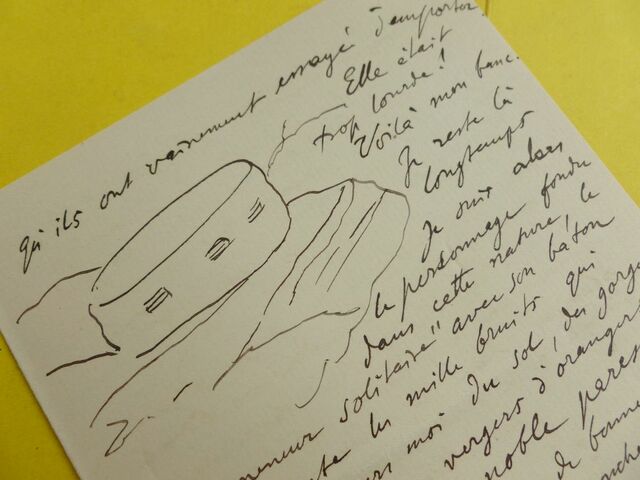 qu'ils ont vainement essayé d'emporter.
Elle était
trop lourde!
Voilà mon banc.
Je reste là
longtemps
Je suis alors
le personnage fondu
dans cette nature, le
meneur solitaire" avec son bâton
te les mille bruits qui
moi du sol, des gorge
vergers d'orangers
noble
de